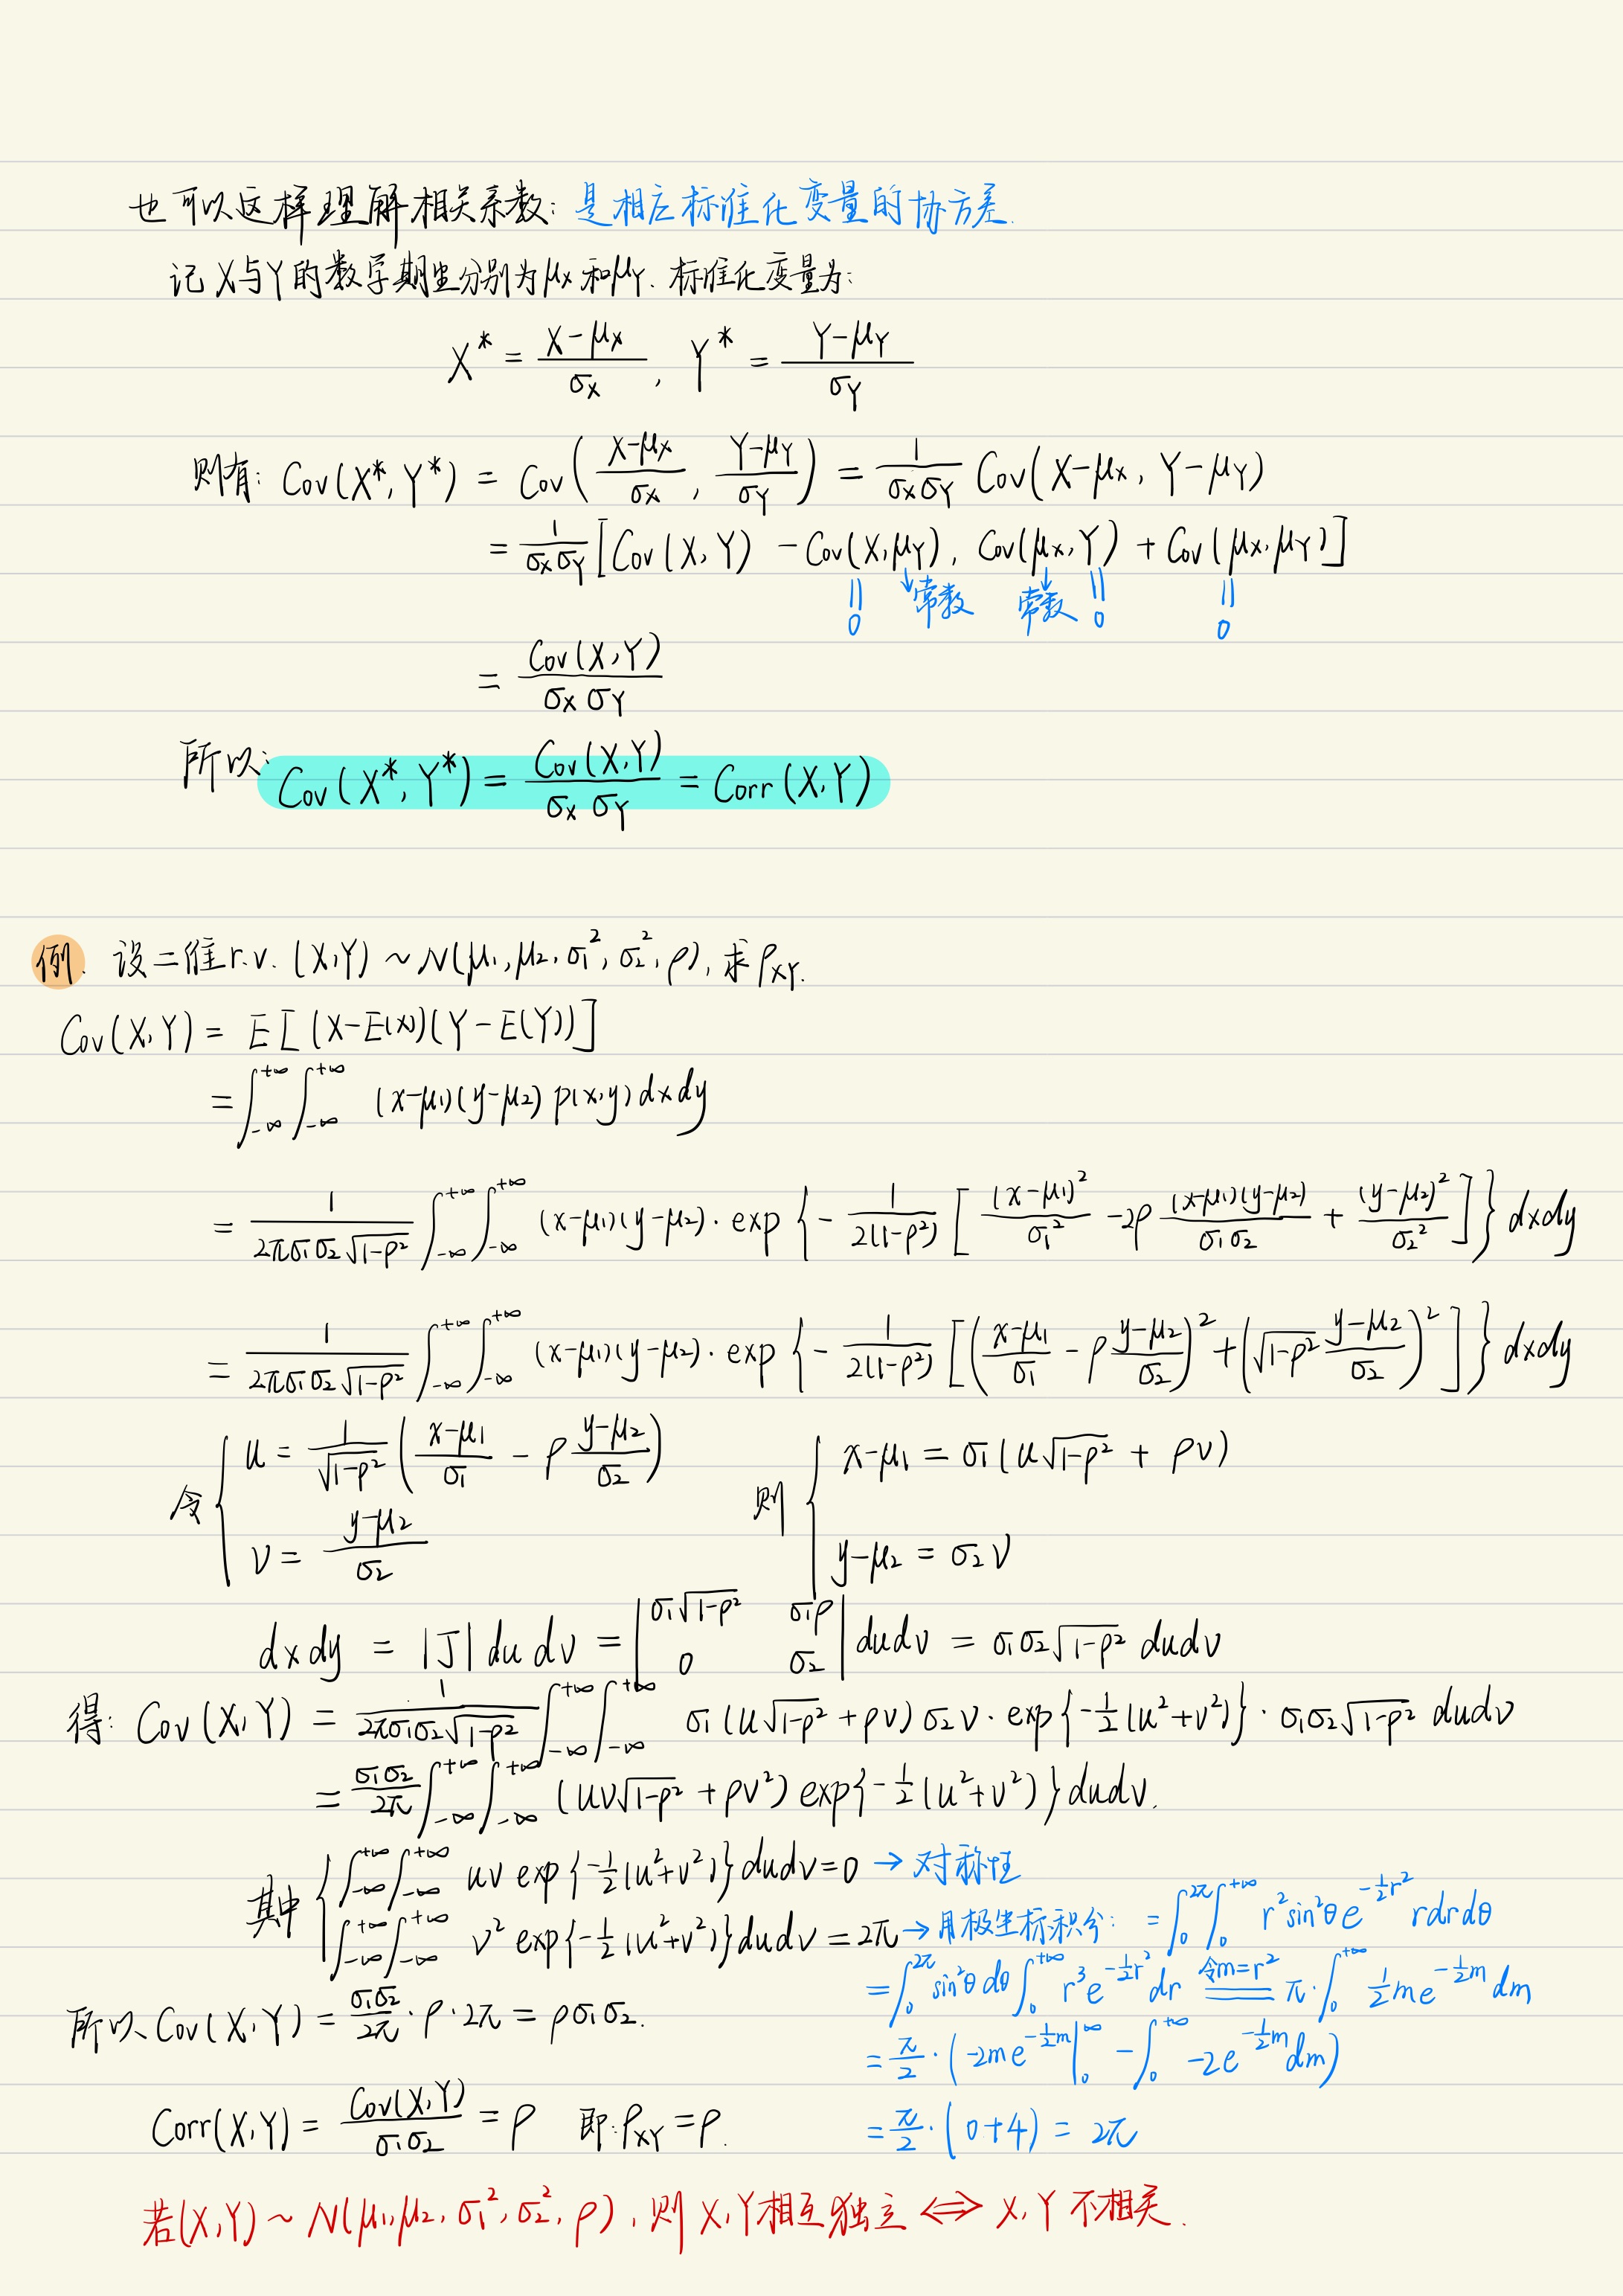 也可以这样理解相关系数: 是相应标准化变量的协方差.
记X与Y的数学期望分别为μx和μY. 标准化变量为:
X* = (X-μx)/σx , Y* = (Y-μY)/σY
则有: Cov(X*, Y*) = Cov((X-μx)/σx , (Y-μY)/σY) = 1/(σxσY) Cov(X-μx, Y-μY)
= 1/(σxσY) [Cov(X, Y) - Cov(X, μY), Cov(μx, Y) + Cov(μx, μY)]
|| ↓常数 常数↓ || ||
0 0 0
= Cov(X,Y)/(σx σY)
所以: Cov(X*, Y*) = Cov(X,Y)/(σx σY) = Corr(X,Y)
例. 设二维r.v. (X,Y) ~ N(μ₁, μ₂, σ₁², σ₂², ρ), 求ρXY.
Cov(X,Y) = E[(X-E(X))(Y-E(Y))]
= ∫_{-∞}^{+∞} ∫_{-∞}^{+∞} (x-μ₁)(y-μ₂) p(x,y) dxdy
= 1/(2πσ₁σ₂√(1-ρ²)) ∫_{-∞}^{+∞} ∫_{-∞}^{+∞} (x-μ₁)(y-μ₂)· exp{- 1/(2(1-ρ²)) [ (x-μ₁)²/σ₁² -2ρ (x-μ₁)(y-μ₂)/(σ₁σ₂) + (y-μ₂)²/σ₂² ]} dxdy
= 1/(2πσ₁σ₂√(1-ρ²)) ∫_{-∞}^{+∞} ∫_{-∞}^{+∞} (x-μ₁)(y-μ₂)· exp{- 1/(2(1-ρ²)) [((x-μ₁)/σ₁ - ρ (y-μ₂)/σ₂)² + (√(1-ρ²) (y-μ₂)/σ₂)²]} dxdy
令 { u = 1/√(1-ρ²) ((x-μ₁)/σ₁ - ρ (y-μ₂)/σ₂) 则 { x-μ₁ = σ₁(u√(1-ρ²) + ρv)
v = (y-μ₂)/σ₂ y-μ₂ = σ₂v
dxdy = |J| du dv = | σ₁√(1-ρ²) σ₁ρ ; 0 σ₂ | dudv = σ₁σ₂√(1-ρ²) dudv
得: Cov(X,Y) = 1/(2πσ₁σ₂√(1-ρ²)) ∫_{-∞}^{+∞} ∫_{-∞}^{+∞} σ₁(u√(1-ρ²) + ρv) σ₂v · exp{-½(u²+v²)} · σ₁σ₂√(1-ρ²) dudv
= σ₁σ₂/2π ∫_{-∞}^{+∞} ∫_{-∞}^{+∞} (uv√(1-ρ²) + ρv²) exp{-½(u²+v²)} dudv.
其中 { ∫_{-∞}^{+∞} ∫_{-∞}^{+∞} uv exp{-½(u²+v²)} dudv = 0 → 对称性
∫_{-∞}^{+∞} ∫_{-∞}^{+∞} v² exp{-½(u²+v²)} dudv = 2π → 用极坐标积分: = ∫_0^{2π} ∫_0^{+∞} r²sin²θ e^{-½r²} rdrdθ
= ∫_0^{2π} sin²θ dθ ∫_0^{+∞} r³ e^{-½r²} dr 令m=r² = π· ∫_0^{+∞} ½ m e^{-½m} dm
= π/2 · (-2m e^{-½m} |_0^∞ - ∫_0^{+∞} -2e^{-½m} dm)
= π/2 · (0+4) = 2π
所以 Cov(X,Y) = σ₁σ₂/2π · ρ · 2π = ρσ₁σ₂.
Corr(X,Y) = Cov(X,Y)/(σ₁σ₂) = ρ 即: ρXY = ρ.
若(X,Y) ~ N(μ₁, μ₂, σ₁², σ₂², ρ), 则X,Y相互独立 ⟺ X,Y不相关.